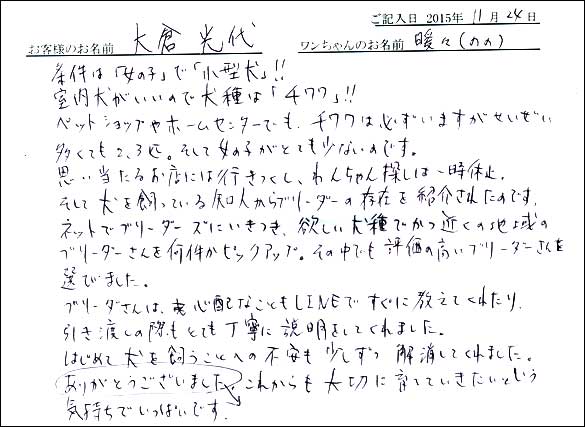 ご記入日 2015年 11月 24日
お客様のお名前 大倉光代 ワンちゃんのお名前 暖々(のの)
条件は「女の子」で「小型犬」!!
室内犬がいいので犬種は「チワワ」!!
ペットショップやホームセンターでも、チワワは必ずいますがせいぜい
多くても2、3匹。そして女の子がとても少ないのです。
思い当たるお店には行きつくし、わんちゃん探しは一時休止。
そして犬を飼っている知人からブリーダーの存在を紹介されたのです。
ネットでブリーダーズにいきつき、欲しい犬種でかつ近くの地域の
ブリーダーさんを何件かピックアップ。その中でも評価の高いブリーダーさんを
選びました。
ブリーダさんは、心配なこともLINEですぐに教えてくれたり、
引き渡しの際もとても丁寧に説明をしてくれました。
はじめて犬を飼うことへの不安も少しずつ解消してくれました。
ありがとうございました これからも大切に育てていきたいという
気持ちでいっぱいです。